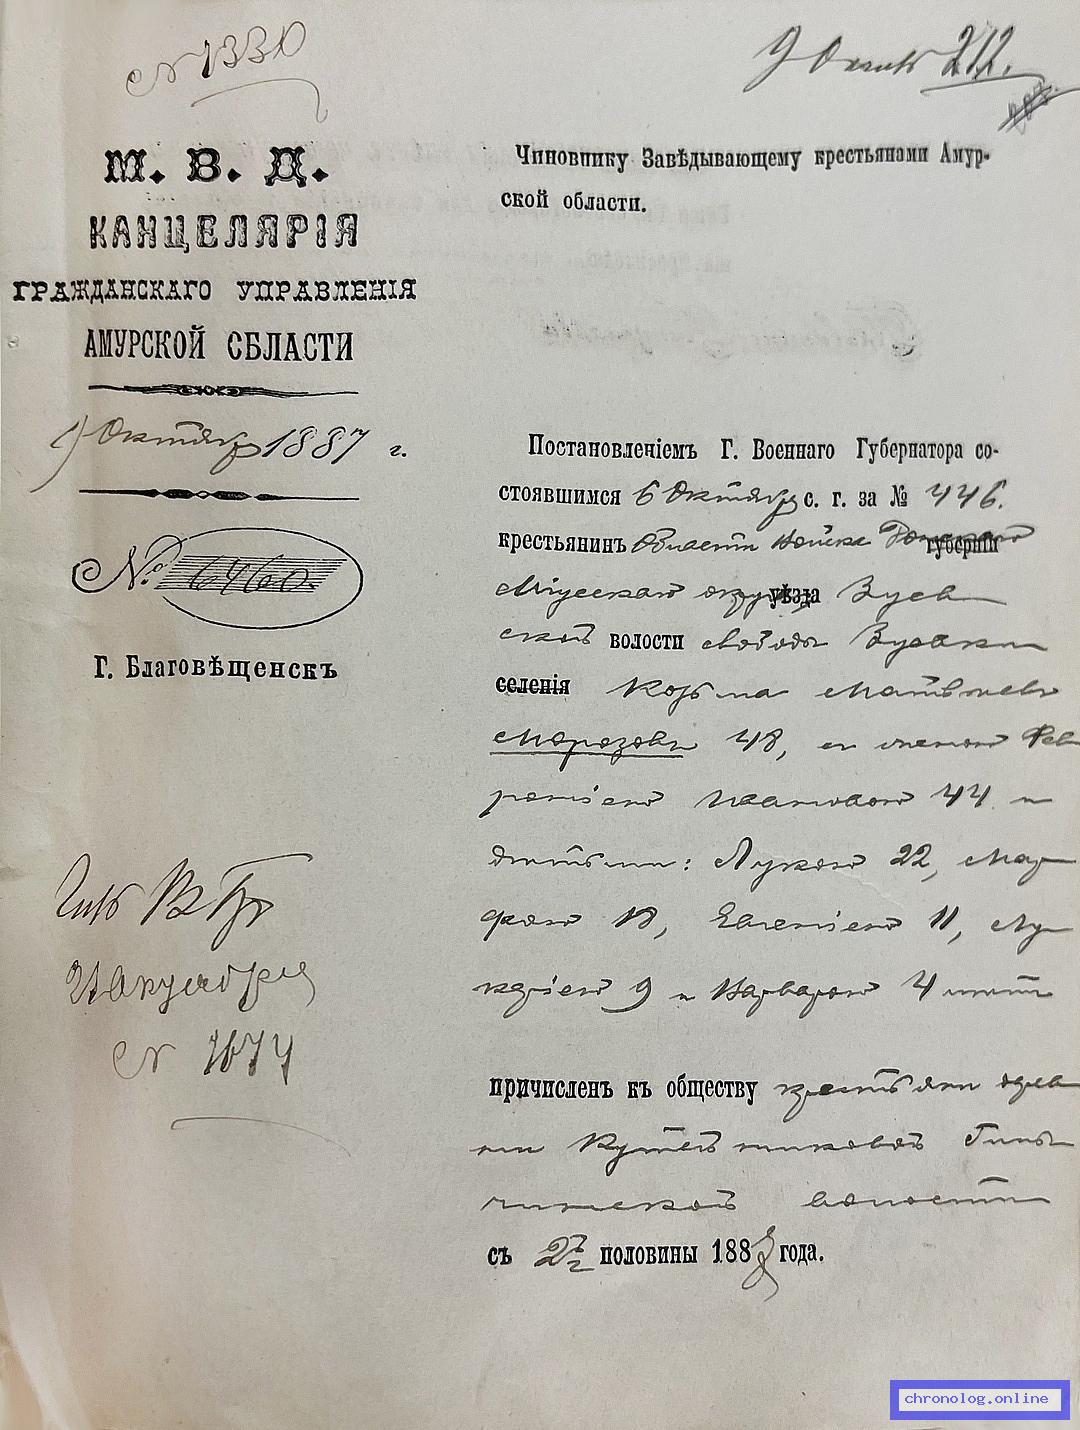 № 1330
9 Октяб 212.
М. В. Д.
КАНЦЕЛЯРІЯ
ГРАЖДАНСКАГО УПРАВЛЕНІЯ
АМУРСКОЙ ОБЛАСТИ
Октября 1887 г.
№ 6460.
Г. Благовѣщенскъ
№ 1674
Чиновнику Завѣдывающему крестьянами Амур-
ской области.
Постановленіемъ Г. Военнаго Губернатора со-
стоявшимся 6 Октября с. г. за № 446.
крестьянинъ Области Войска Донскаго губерніи
Міусскаго округа уѣзда Зуев
ской волости слободы Зуевки
селенія Козьма Матвѣевъ
Морозовъ 48, съ женою Фев
роніею Ивановою 44 и
дѣтьми: Лукою 22, Мар
фою 18, Евгеніею 11, Лу
керіею 9 и Варварою 4 лѣтъ
причисленъ къ обществу крестьянъ дерев
ни Гиль
чинской волости
съ 2й половины 188 года.
chronolog.online